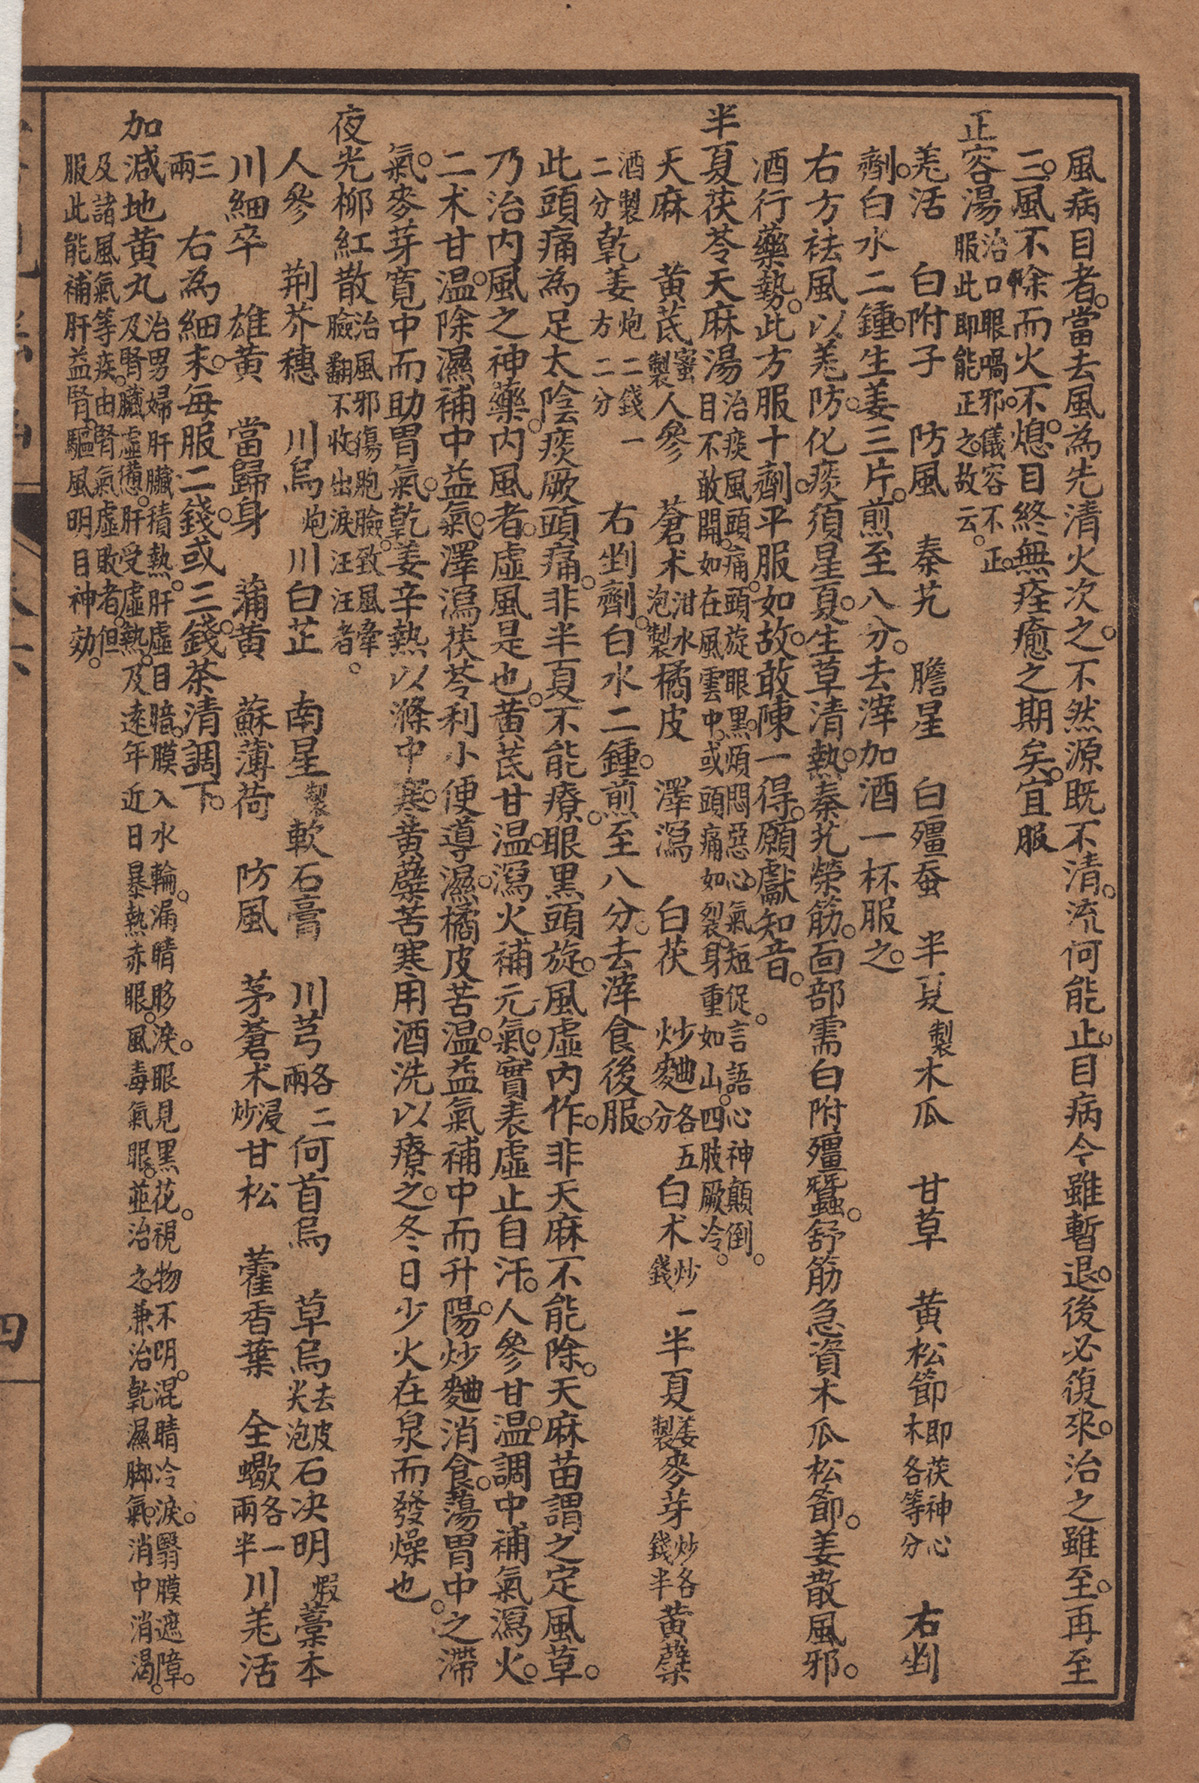 風病目者。當去風為先清火次之。不然源既不清。流何能止。目病今雖暫退。後必復來。治之雖至。再至
三。風不除而火不熄。目終無痊癒之期矣。宜服
正容湯治口眼喎邪。儀容不正。服此即能正之。故云。
羗活　白附子　防風　秦艽　膽星　白殭蚕　半夏製木瓜　甘草　黃松節即茯神心木各等分　右剉
劑。白水二鍾。生姜三片。煎至八分。去滓加酒一杯服之。
右方祛風以羗防。化痰須星夏。生草清熱。秦艽榮筋。面部需白附殭蠶。舒筋急資木瓜松節。姜散風邪。
酒行藥勢。此方服十劑。平服如故。敢陳一得。願獻知音。
半夏茯苓天麻湯治痰風頭痛。頭旋眼黑。煩悶惡心。氣短促。言語心神顛倒。目不敢開。如在風雲中。或頭痛如裂。身重如山。四肢厥冷。
天麻　黃芪蜜製人參　蒼术泔水泡製橘皮　澤瀉　白茯　炒麯各五分白术炒一錢半夏姜製麥芽炒各錢半黃蘗
酒製二分乾姜炮二錢一方二分　右剉劑。白水二鍾。煎至八分。去滓食後服。
此頭痛為足太陰痰厥頭痛。非半夏不能療。眼黑頭旋。風虛內作。非天麻不能除。天麻苗謂之定風草。
乃治內風之神藥。內風者。虛風是也。黃芪甘溫。瀉火補元氣。實表虛止自汗。人參甘溫。調中補氣瀉火。
二术甘溫。除濕補中益氣。澤瀉茯苓利小便導濕。橘皮苦溫。益氣補中而升陽。炒麯消食。蕩胃中之滯
氣。麥芽寬中而助胃氣。乾姜辛熱以滌中寒。黃蘗苦寒用酒洗以療之。冬日少火在泉而發燥也。
夜光柳紅散治風邪傷胞瞼。致風牽瞼翻不收。出淚汪汪者。
人參　荆芥穗　川烏炮川白芷　南星製軟石膏　川芎各二兩何首烏　草烏去皮尖泡石决明煆藁本
川細辛　雄黃　當歸身　蒲黃　蘇薄荷　防風　茅蒼术浸炒甘松　藿香葉　全蠍各一兩半川羗活
三兩　右為細末。每服二錢。或三錢。茶清調下。
加減地黃丸治男婦肝臟積熱。肝虛目暗。膜入水輪。漏睛眵淚。眼見黑花。視物不明。混睛冷淚。翳膜遮障。及腎臟虛憊。肝受虛熱。及遠年近日暴熱赤眼。風毒氣眼。並治之。兼治乾濕脚氣。消中消渴。
及諸風氣等疾。由腎氣虛敗者。但服此能補肝益腎。驅風明目神効。
四